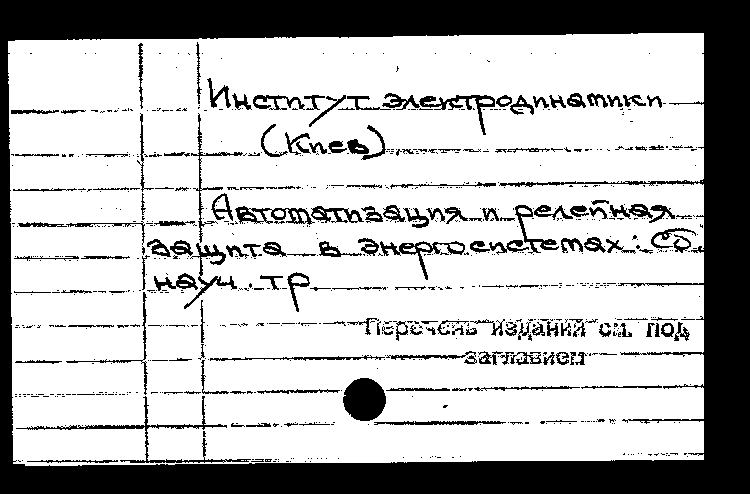 Институт электродинамики
(Киев)
Автоматизация и релейная
защита в энергосистемах: Сб.
науч. тр.
Перечень изданий см. под
заглавием